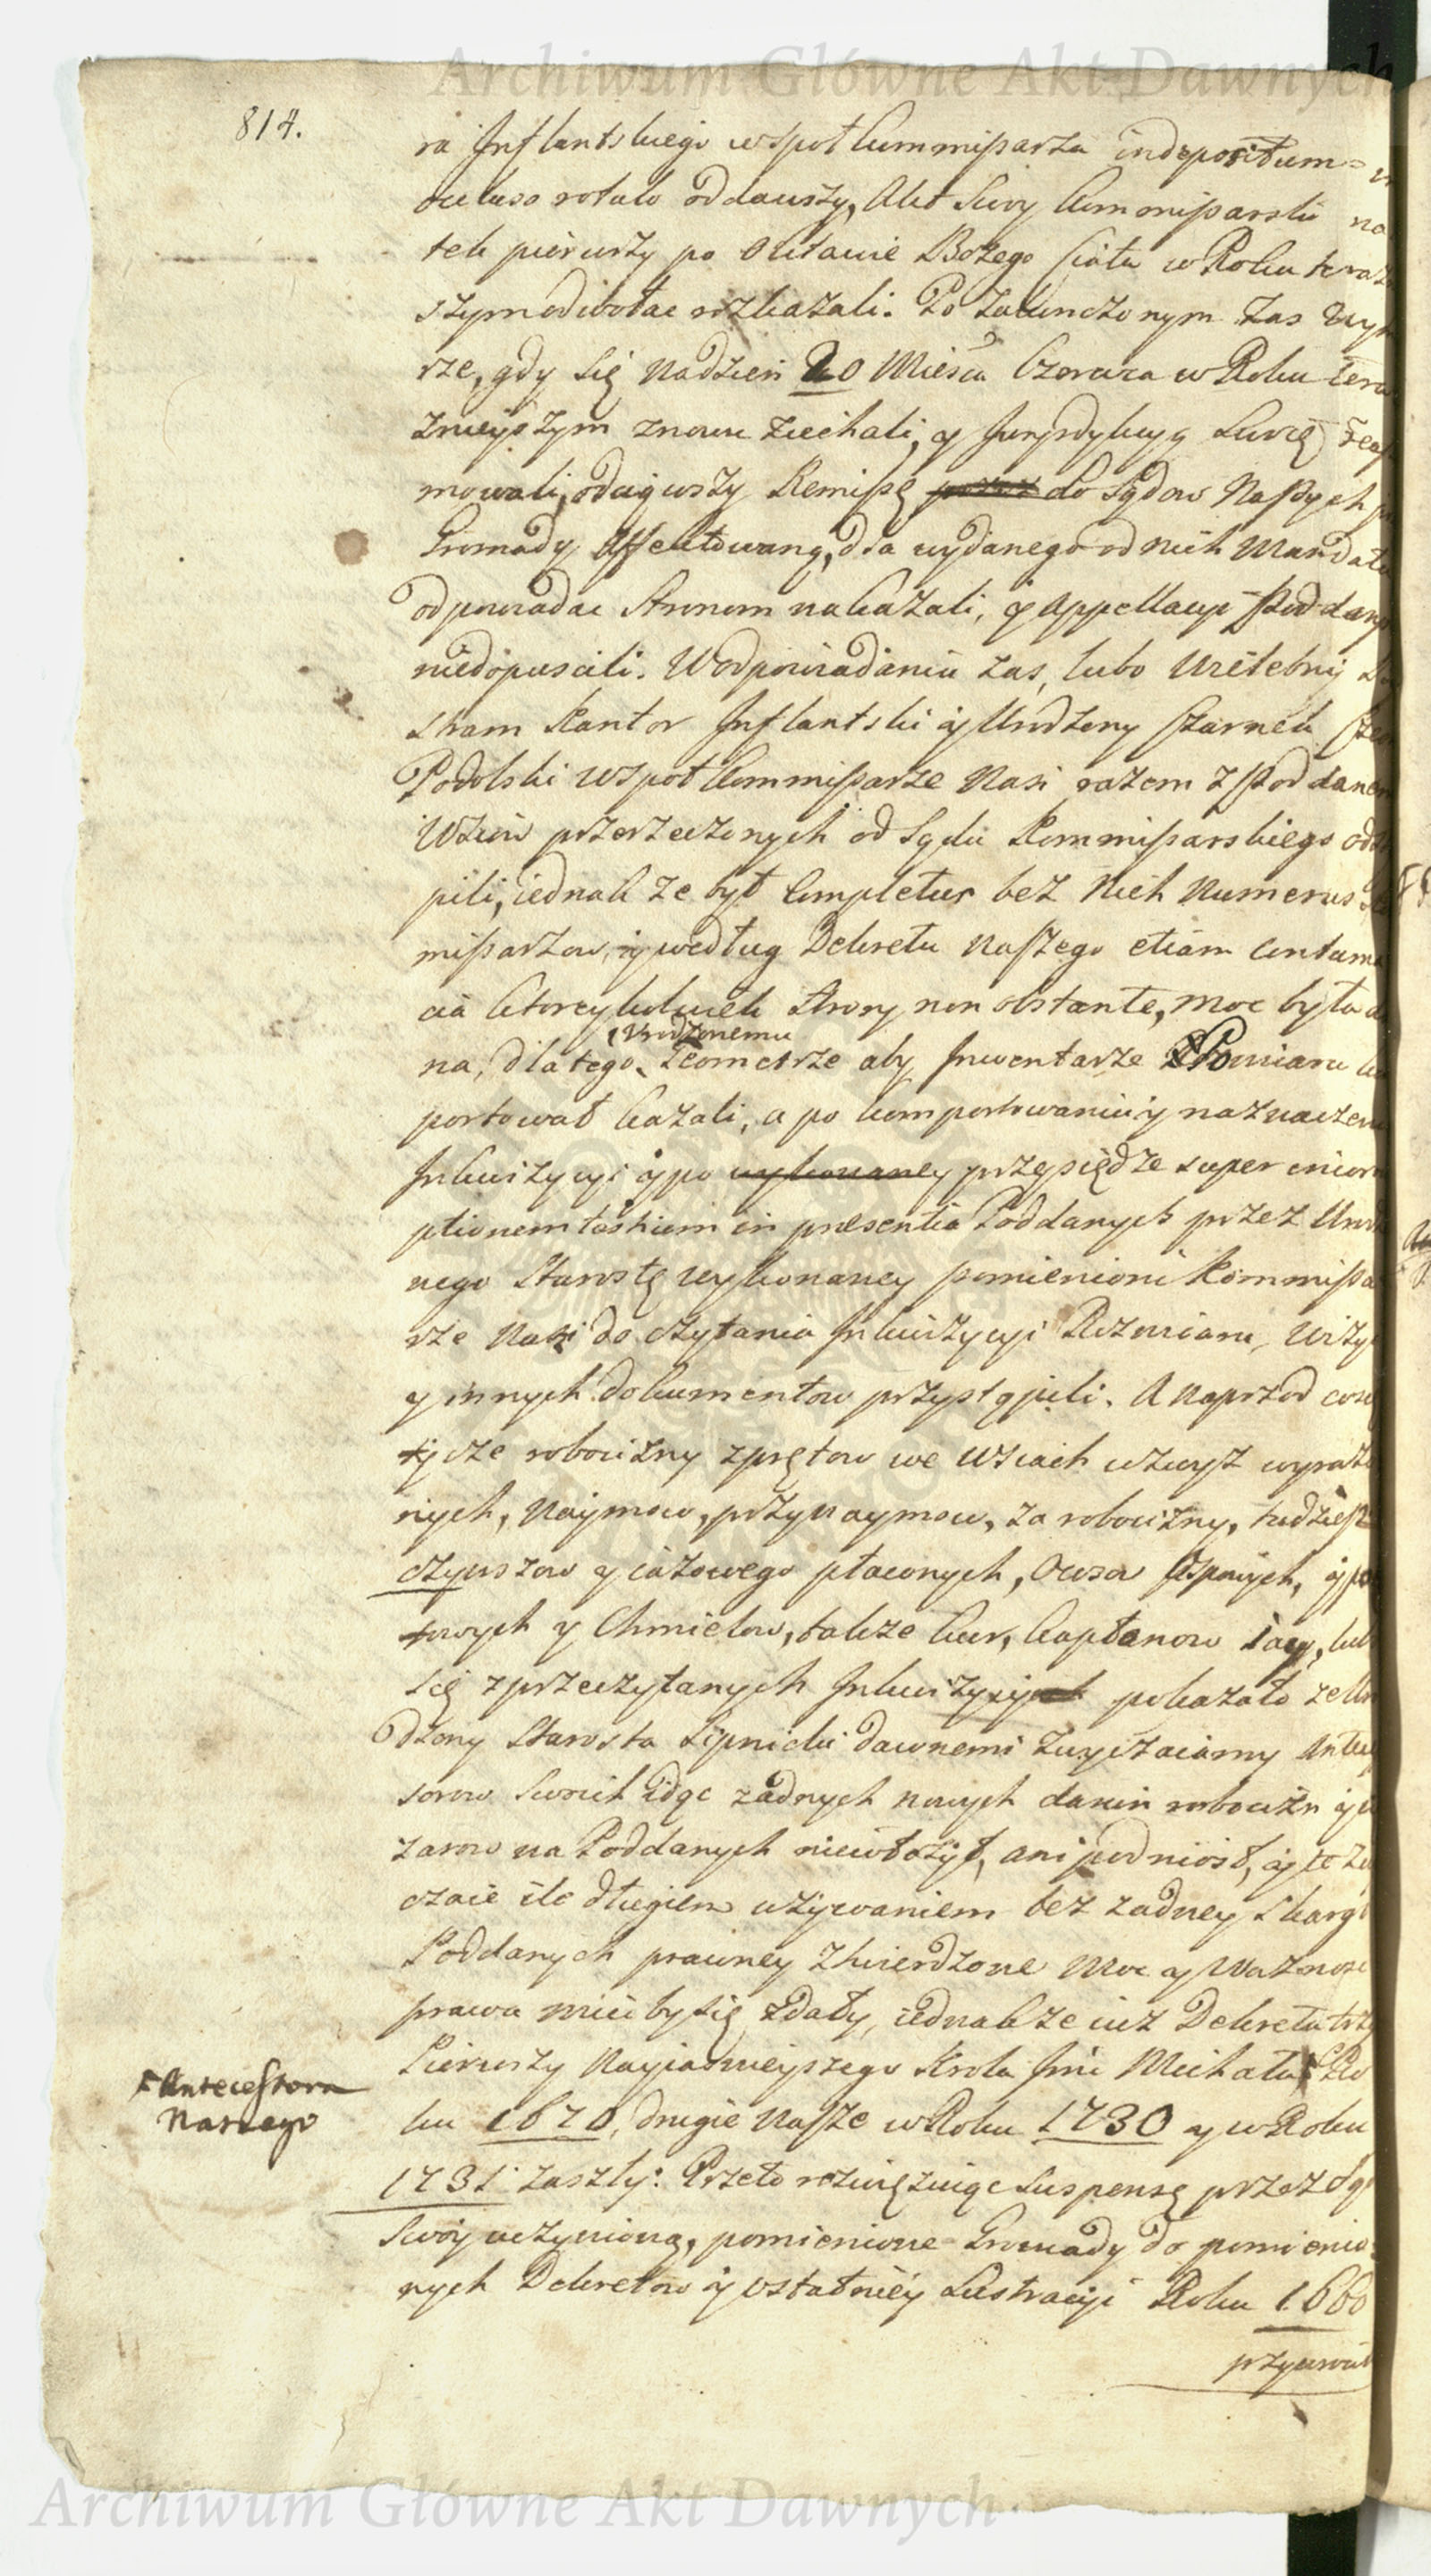 Archiwum Główne Akt Dawnych
814.
ra Inflantskiego wspołkommißarza in depositum
rotulo oddawszy, Akt Swoy Kommißarski na
tek pierwszy po Oktawie Bożego Ciała w Roku teraz
szym odwołac roskazali. Po Zakonczonym Zas
rze, gdy Się Nadzien 20 Mieśca Czerwca w Roku tera
znieyszym znowu Ziechali, y Jurysdykcyą Swoię reas
mowali, odciąwszy Remißę do Sądow Naszych
Gromady Affektowaną, dla wydanego od nich Mandatu
odpowiadac Stronom nakazali, y Appellacyi Poddany
niedopuscili. W odpowiadaniu Zas, lubo Wielebny
Kantor Inflantski y Urodzony Czarnek
Podolski wspoł Kommißarze Nasi razem z Poddane
Wsiow przerzeczonych od Sądu Kommißarskiego ods
pili, iednak ze był Completus bez Nich Numerus
mißarzow, y według Dekretu Naszego etiam contuma
cia ktoreykolwiek Strony non obstante, moc była
Urodzonemu
na, dlatego Jeometrze aby Inwentarze Pomiaru
portował kazali, a po komportowaniu y naznaczen
Inkwizycyi y po przysiędze super
ptionem testium in presentia Poddanych przez Uro
nego Starostę wykonaney pomienioni Kommißa
rze Nasi do czytania Inkwizycyi Rozmiaru, Wizy
y innych Dokumentow przystąpili. A Naprzod cosię
tycze robocizny z prętow we Wsiach wzwyż wyraż
nych, Naymow, przynaymow, za robocizny, tudziesz
czynszow y ciążowego płaconych, Owsa Sypnych, y
y Chmielow, także kur, kapłonow iay, lub
Się z przeczytanych Inkwizycyi pokazało ze Ur
dzony Starosta Lipnicki dawnemi Zwyczaiamy Antec
sorow Swoich idąc żadnych nowych danin robocizn y
żarow na Poddanych niewłożył, ani podniosł, y te Zw
czaie ile długiem używaniem bez żadney Skargi
Poddanych prawney ztwierdzone Moc y Ważnosc
prawa miec by się zdały, iednakże iuż Dekreta trzy
Pierwszy Nayiasnieyszego Krola Jmci Michała Ro
Antecessora
Naszego
ku 1670, drugie Nasze w Roku 1730 y w Roku
1731 zaszły: Przeto rozwięzuiąc Suspensę przez Są
Swoy uczynioną, pomienione Gromady do pomienio
nych Dekretow y ostatniey Lustracyi Roku 1660
przywroc
Archiwum Główne Akt Dawnych